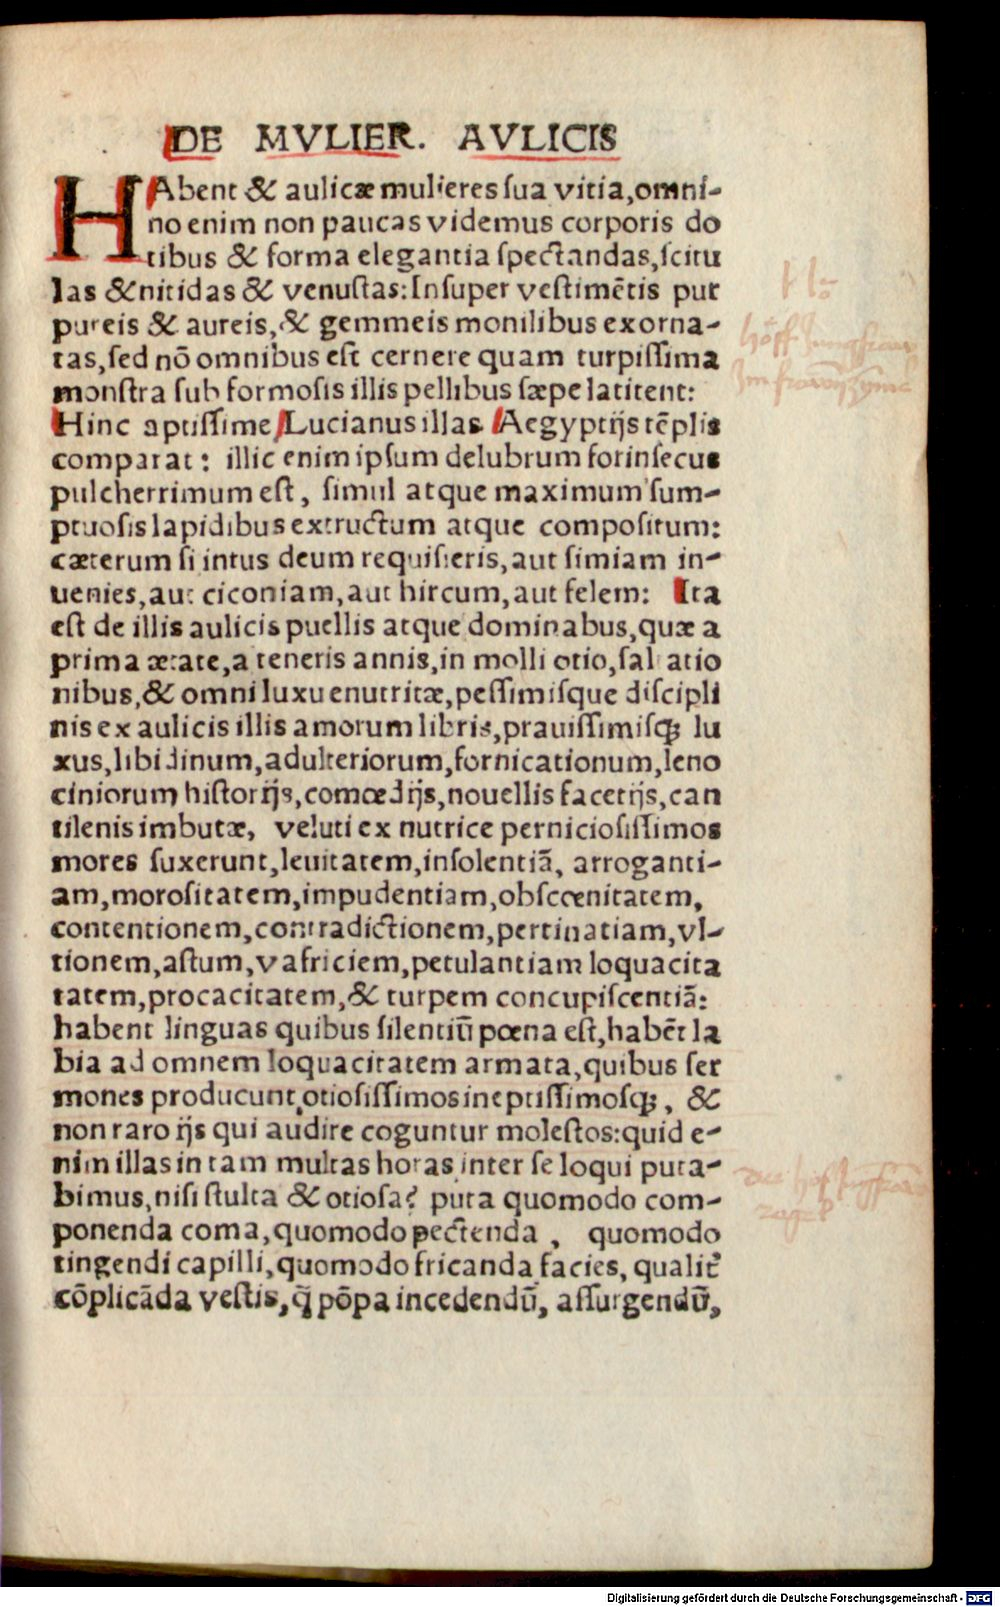 DE MVLIER. AVLICIS
HAbent & aulicæ mulieres ſua vitia,omni-
no enim non paucas videmus corporis do
tibus & forma elegantia ſpectandas,ſcitu
las & nitidas & venuſtas:Inſuper veſtimētis pur
pureis & aureis,& gemmeis monilibus exorna-
tas,ſed nō omnibus eſt cernere quam turpiſſima
monſtra ſub formoſis illis pellibus ſæpe latitent:
Hinc aptiſſime Lucianus illas Aegyptijs tēplis
comparat: illic enim ipſum delubrum forinſecus
pulcherrimum eſt, ſimul atque maximum ſum-
ptuoſis lapidibus extructum atque compoſitum:
cæterum ſi intus deum requiſieris,aut ſimiam in-
uenies,aut ciconiam,aut hircum,aut felem: Ita
eſt de illis aulicis puellis atque dominabus,quæ a
prima ætate,a teneris annis,in molli otio,ſaltatio
nibus,& omni luxu enutritæ,peſſimiſque diſcipli
nis ex aulicis illis amorum libris,prauiſſimiſqꝫ lu
xus,libidinum,adulteriorum,fornicationum,leno
ciniorum hiſtorijs,comœdijs,nouellis facetijs,can
tilenis imbutæ, veluti ex nutrice pernicioſiſſimos
mores ſuxerunt,leuitatem,inſolentiā, arroganti-
am,moroſitatem,impudentiam,obſcœnitatem,
contentionem,contradictionem,pertinatiam,vl-
tionem,aſtum,vafriciem,petulantiam loquacita
tatem,procacitatem,& turpem concupiſcentiā:
habent linguas quibus ſilentiū pœna eſt,habēt la
bia ad omnem loquacitatem armata,quibus ſer
mones producunt,otioſiſſimos ineptiſſimoſqꝫ, &
non raro ijs qui audire coguntur moleſtos:quid e-
nim illas in tam multas horas inter ſe loqui puta-
bimus,niſi ſtulta & otioſa? puta quomodo com-
ponenda coma,quomodo pectenda , quomodo
tingendi capilli,quomodo fricanda facies, qualit᷑
cōplicāda veſtis,q̄ pōpa incedendū, aſſurgendū,
höff Jungfraw
Digitalisierung gefördert durch die Deutsche Forschungsgemeinschaft - DFG